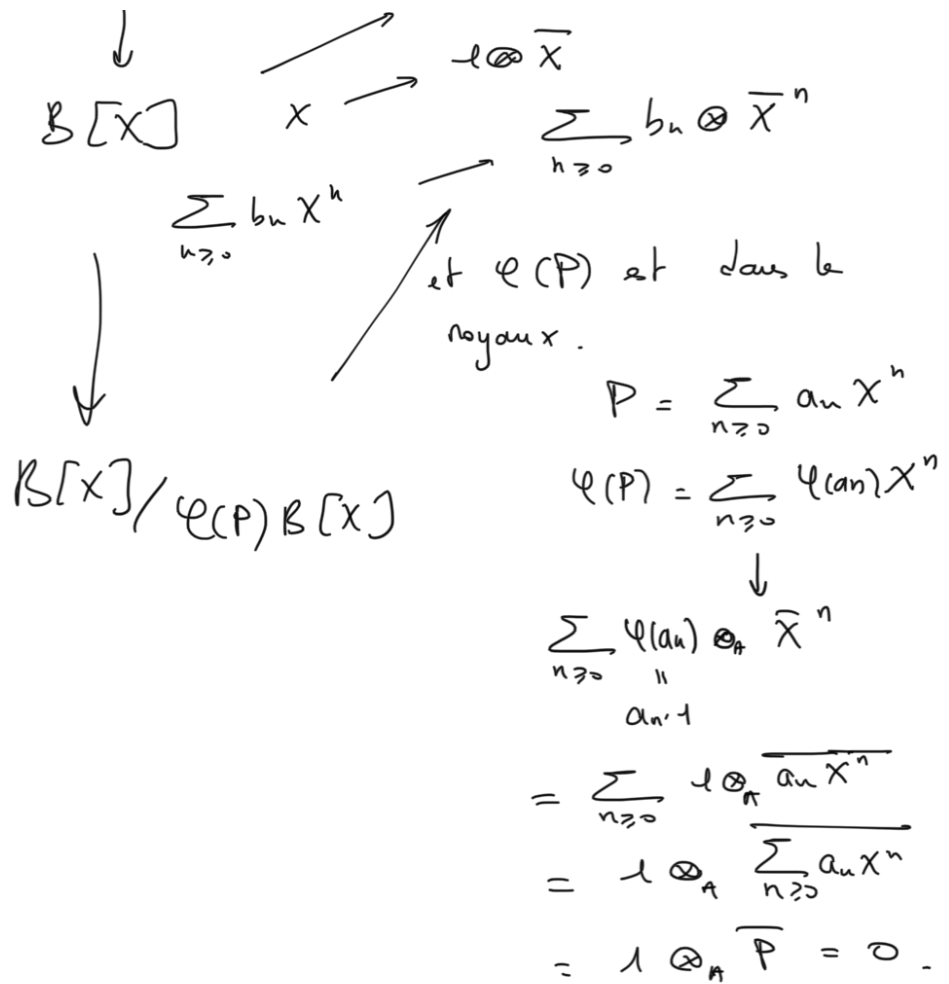 1 ⊗ X̄
B[X]
X
∑_{n≥0} bₙ ⊗ X̄ⁿ
∑_{n≥0} bₙ Xⁿ
et φ(P) est dans le
noyaux.
P = ∑_{n≥0} aₙ Xⁿ
B[X]/φ(P)B[X]
φ(P) = ∑_{n≥0} φ(aₙ)Xⁿ
↓
∑_{n≥0} φ(aₙ) ⊗_A X̄ⁿ
"
aₙ·1
= ∑_{n≥0} 1 ⊗_A \overline{aₙ Xⁿ}
= 1 ⊗_A \overline{∑_{n≥0} aₙ Xⁿ}
= 1 ⊗_A P̄ = 0.